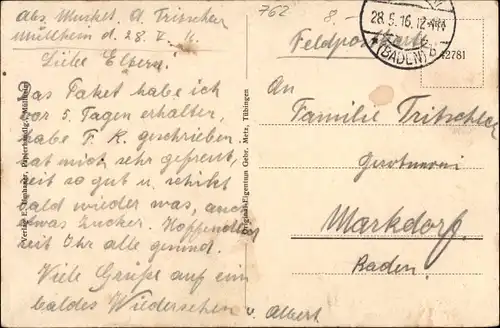 Abs. Musket. A. Tritscher
Müllheim d. 28. V. 16.
Liebe Eltern!
Das Paket habe ich
vor 5. Tagen erhalten,
habe F. K. geschrieben.
hat mich sehr gefreut,
seit so gut u. schikt
bald wieder was, auch
etwas Zucker. Hoffendlich
seit Ihr alle gesund.
Viele Grüße auf ein
baldes Wiedersehen
v. Albert
762
8.-
28.5.16. 12-
(BADEN)
Feldpostkarte
42781
An
Familie Tritschler
Markdorf.
Baden.
Original-Eigentum Gebr. Metz, Tübingen